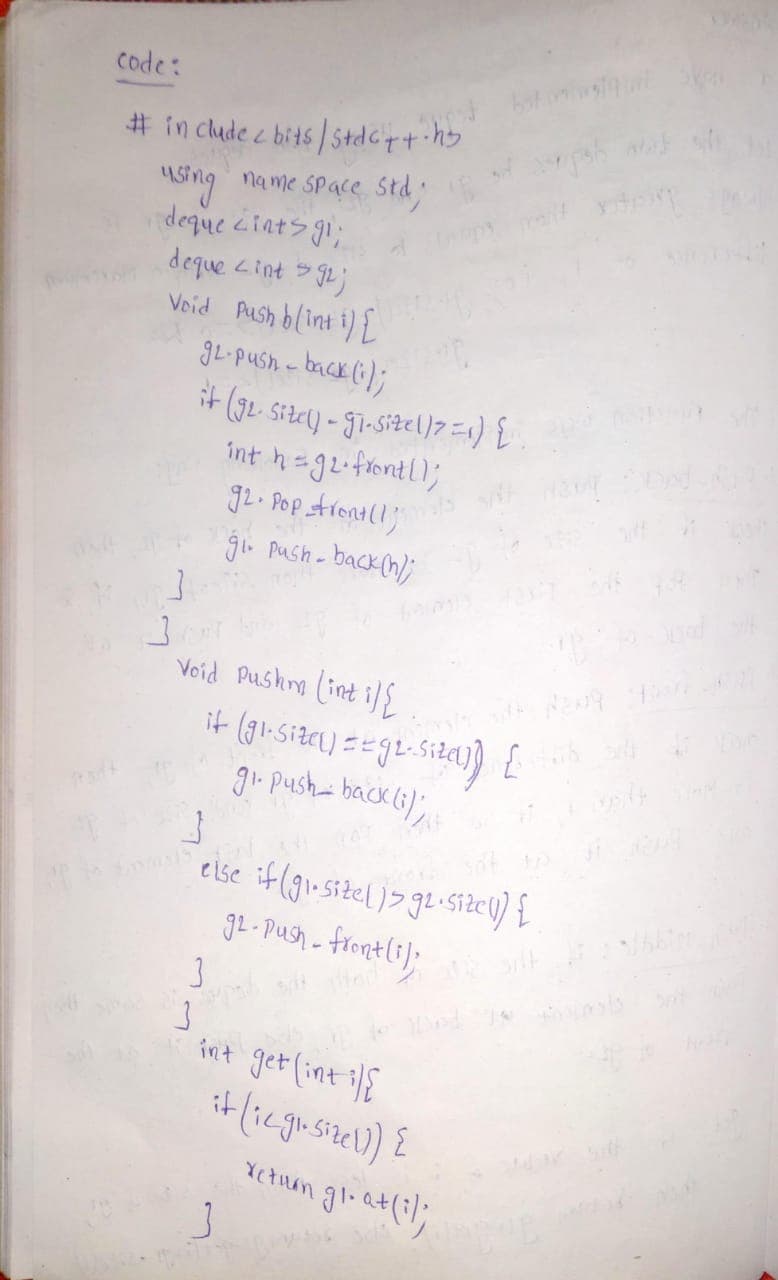 code:
# include < bits / stdc++.h>
using name space std;
deque <int> g1;
deque <int > g2;
Void Push b(int i) {
g2.push_back(i);
if (g2.size() - g1.size() >=1) {
int h = g2.front();
g2. Pop_front();
g1. Push_back(h);
}
}
Void Pushm (int i) {
if (g1.size() == g2.size()) {
g1. Push_back(i);
}
else if (g1.size() > g2.size()) {
g2. Push_front(i);
}
}
int get (int i) {
if (i<g1.size()) {
return g1.at(i);
}